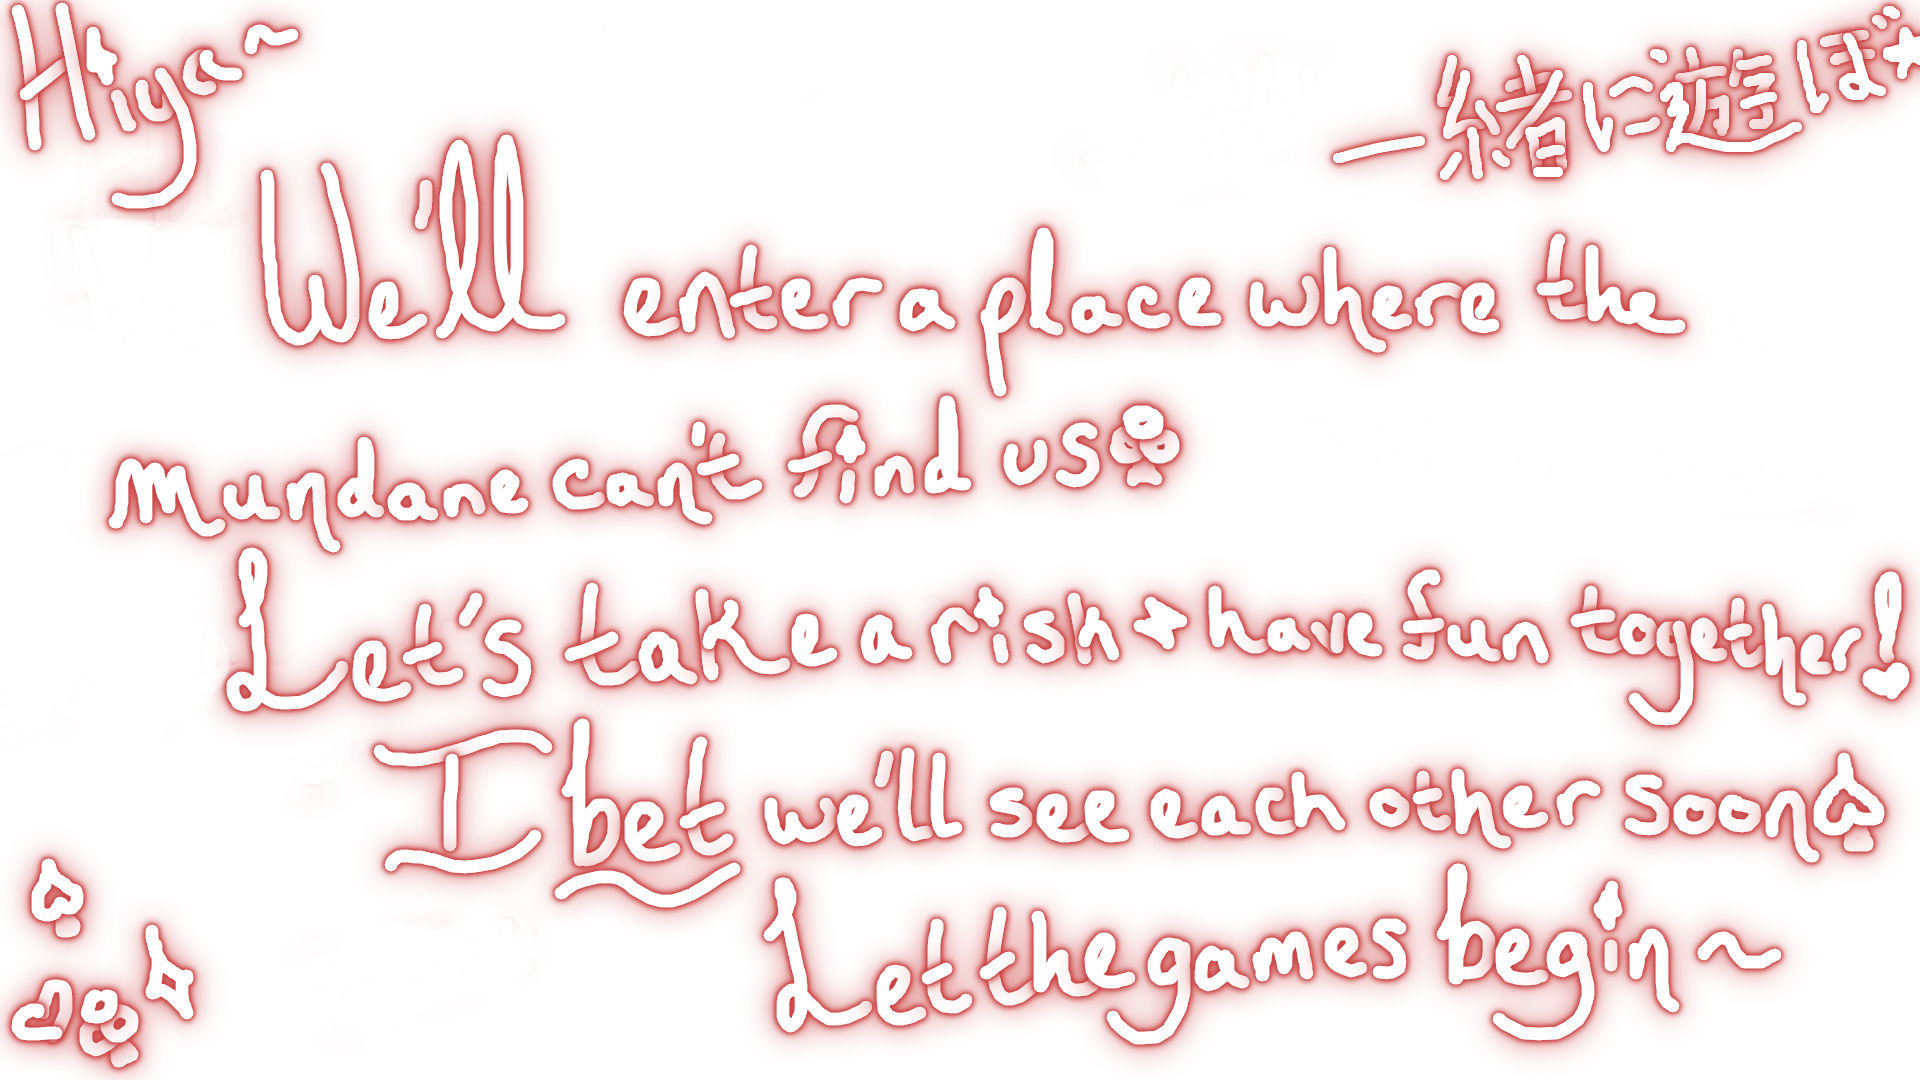 Hiya~
一緒に遊ぼ★
We'll enter a place where the
mundane can't find us♣
Let's take a rish + have fun together!
I bet we'll see each other soon♠
Let the games begin~